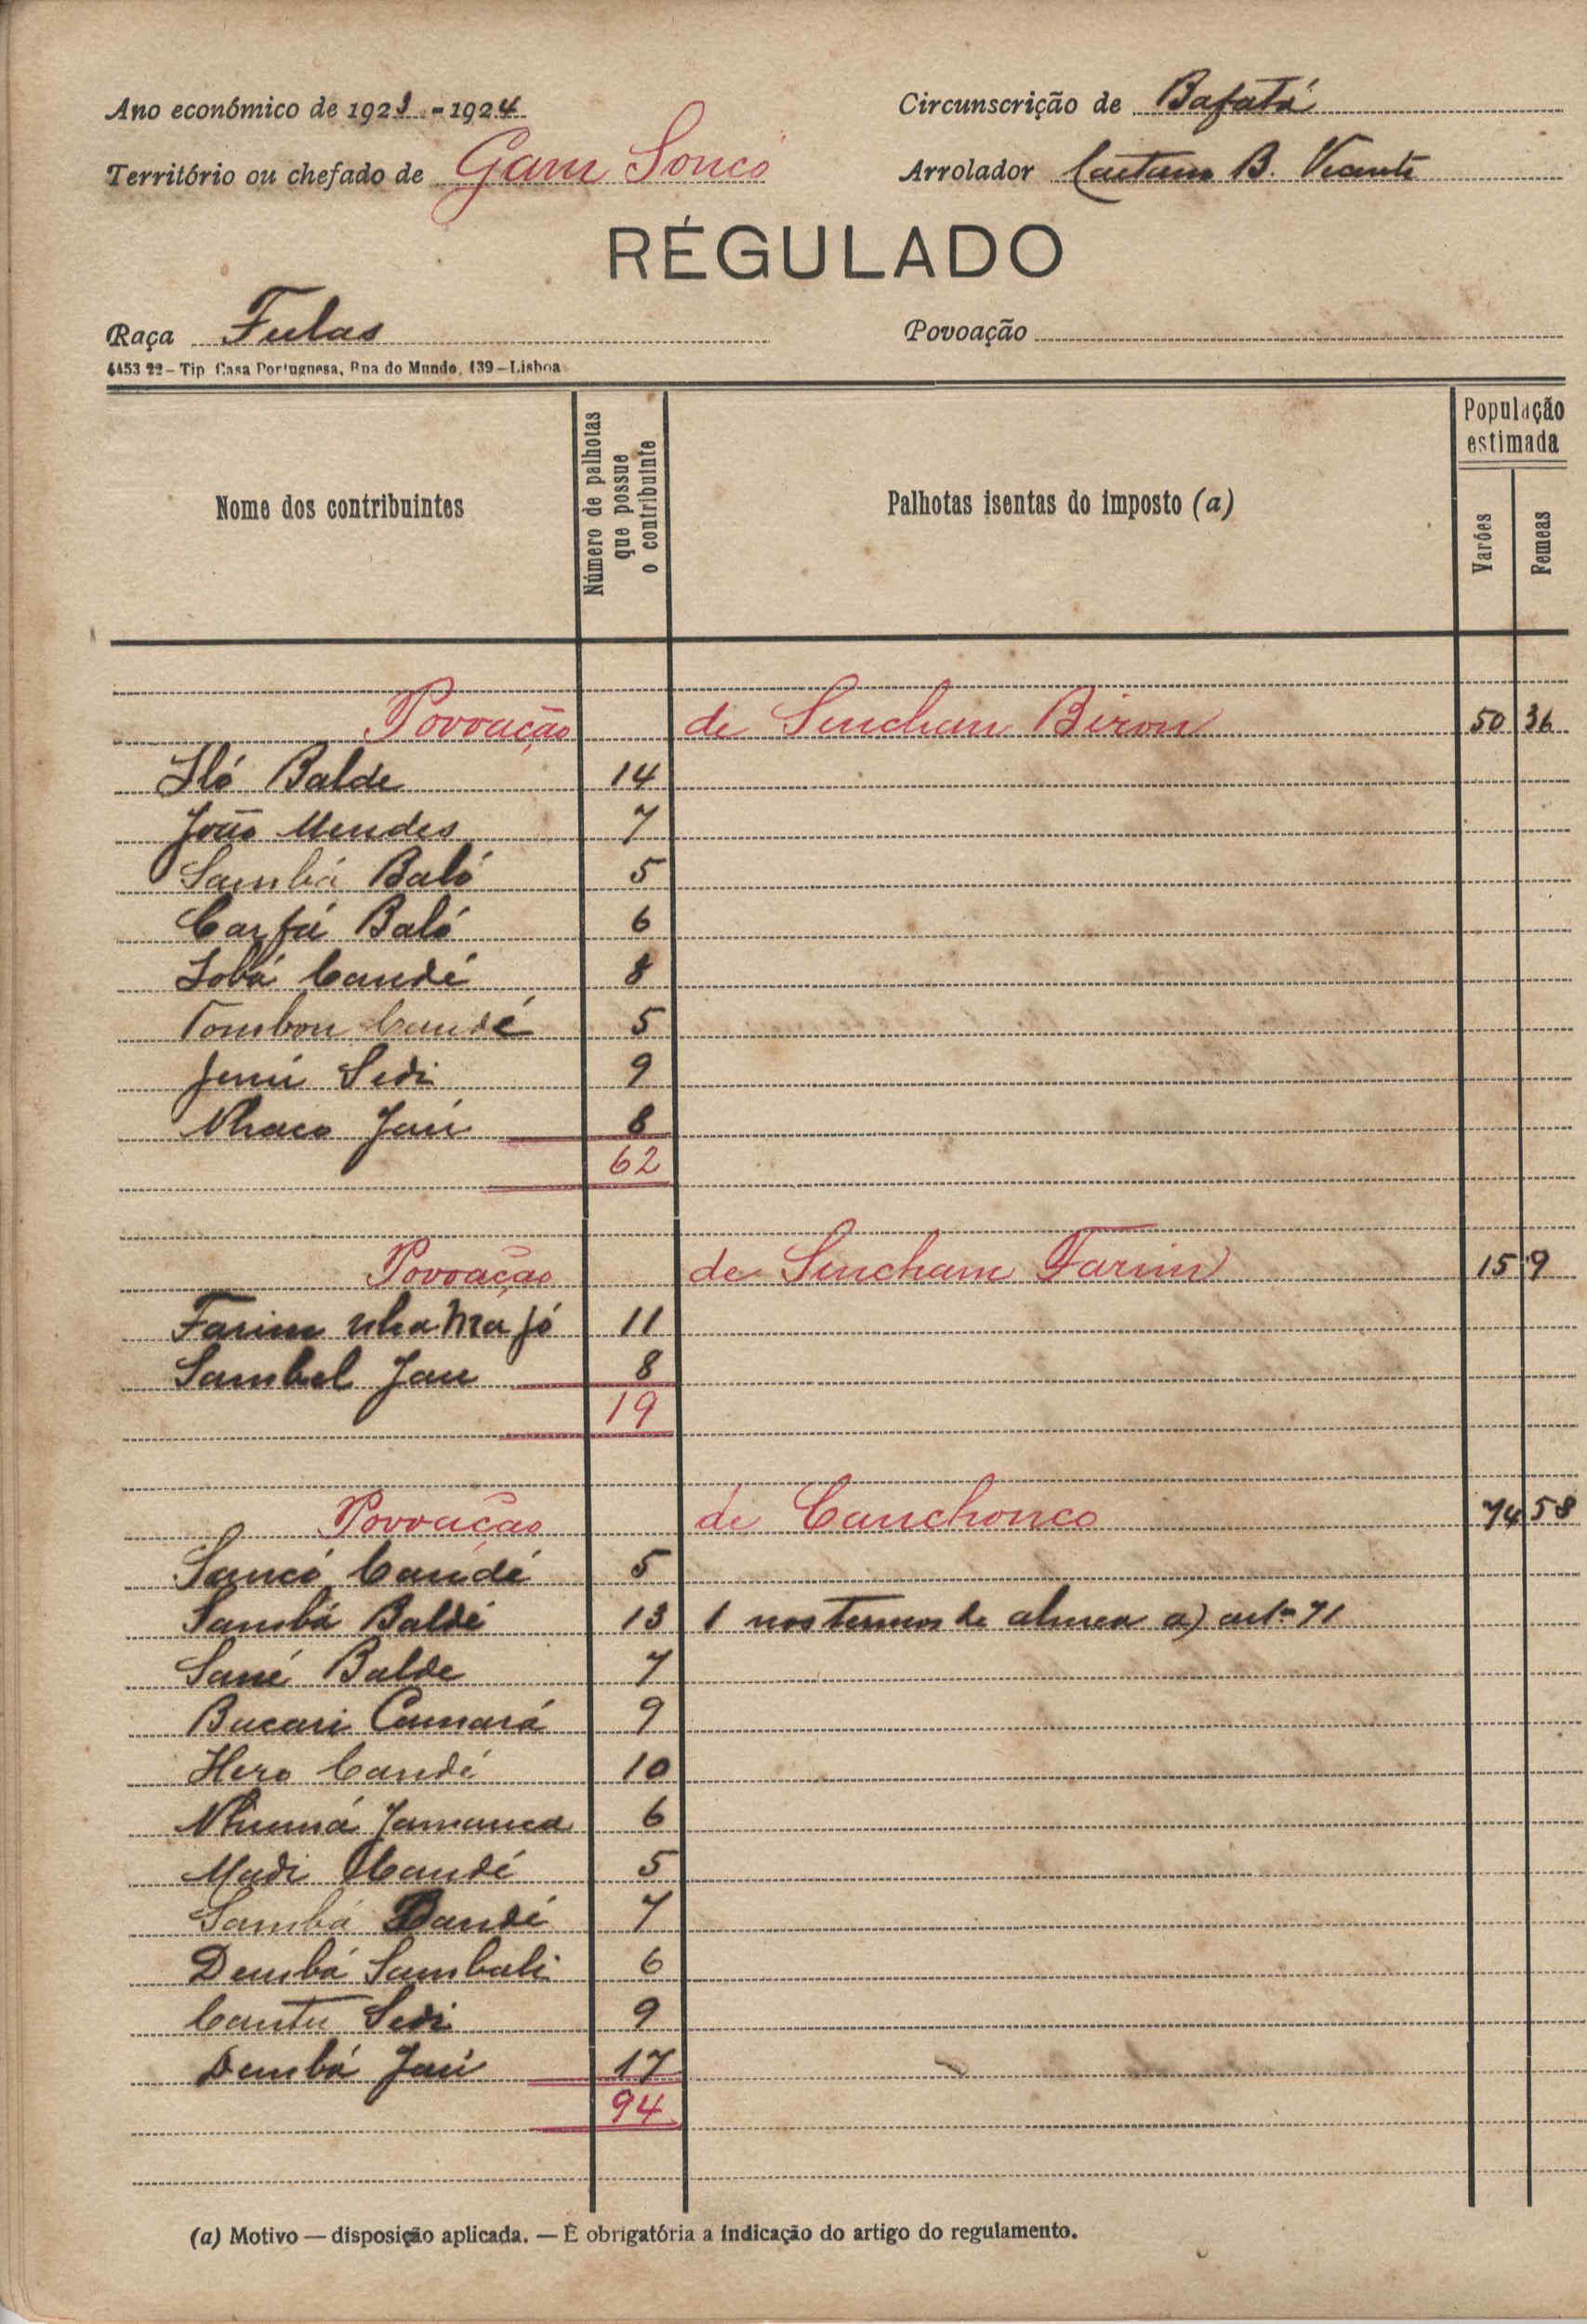 Ano económico de 1923 - 1924 Circunscrição de Bafatá
Território ou chefado de Gam Soncó Arrolador Caetano B. Vicente
RÉGULADO
Raça Fulas Povoação
4453 22 - Tip Casa Portuguesa, Rua do Mundo, 139 - Lisboa
Nome dos contribuintes Número de palhotas que possue o contribuinte Palhotas isentas do imposto (a) População estimada Varões Femeas
Povoação de Sincham Biron 50 36
Iló Balde 14
João Mendes 7
Sambá Baló 5
Carfá Baló 6
Lobá Candé 8
Tombon Candé 5
Jenú Sedi 9
Nhaco Jaú 8
62
Povoação de Sincham Farim 15 9
Farim nhamajó 11
Sambel Jau 8
19
Povoação de Canchonco 74 58
Sancó Candé 5
Sambá Baldé 13 1 nos termos da alinea a) artº 71
Sané Balde 7
Bucari Camará 9
Hero Candé 10
Nhumá Jamanca 6
Madi Candé 5
Sambá Dandé 7
Dembá Sambali 6
Cantu Sedi 9
Dembá Jaú 17
94
(a) Motivo — disposição aplicada. — É obrigatória a indicação do artigo do regulamento.